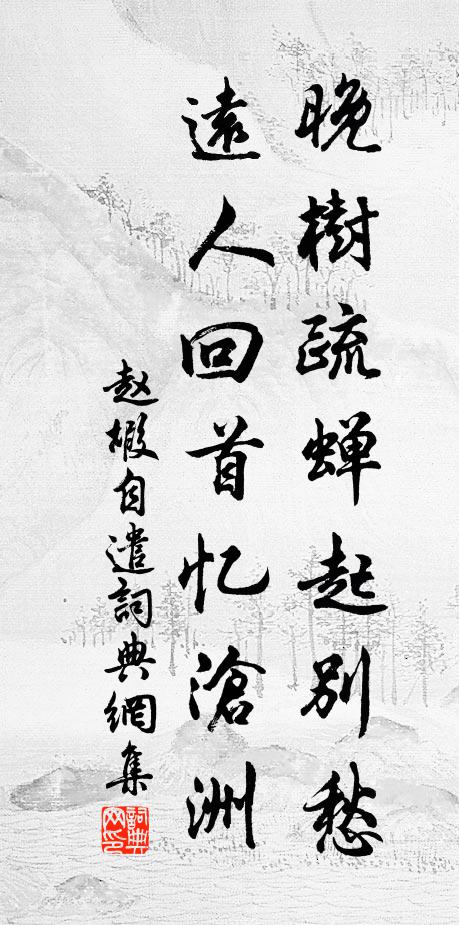 晚樹疏蝉起别愁
遠人回首忆滄洲
赵嘏自遣詞典網集
詞典网印